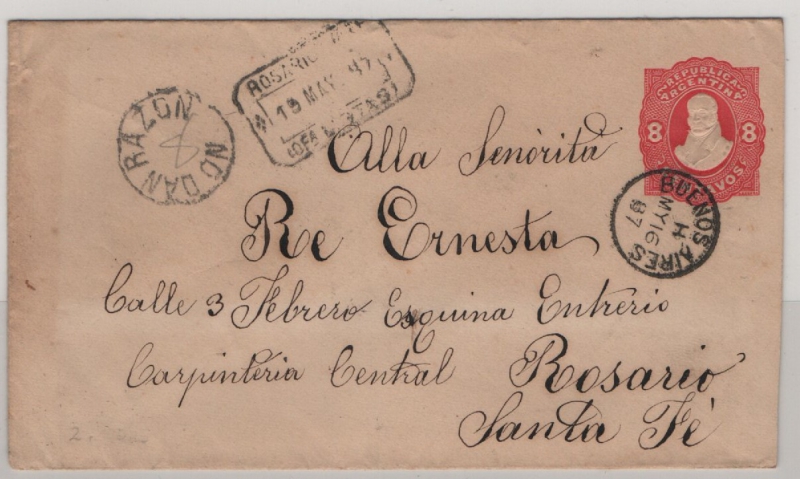 ROSARIO
19 MAY 87
REPUBLICA
ARGENTINA
8 8
NO DAN RAZON
8
BUENOS AIRES
H
MY 16
87
Alla Senòrita
Re Ernesta
Calle 3 Febrero Esquina Entrerio
Carpinteria Central Rosario
Santa Fè
2.